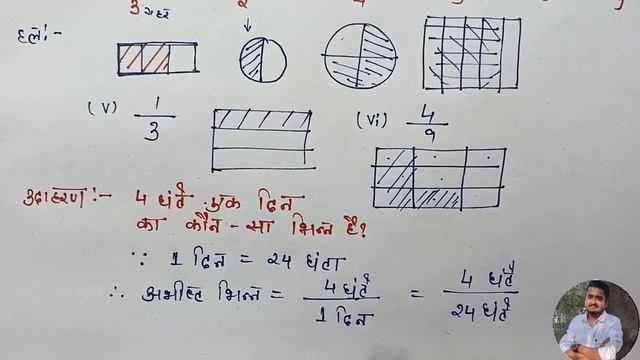 हल:-
(v) 1/3
(vi) 4/9
उदाहरण:- 4 घंटे एक दिन
का कौन-सा भिन्न है?
∵ 1 दिन = 24 घंटा
∴ अभीष्ट भिन्न = 4 घंटे/1 दिन = 4 घंटे/24 घंटे